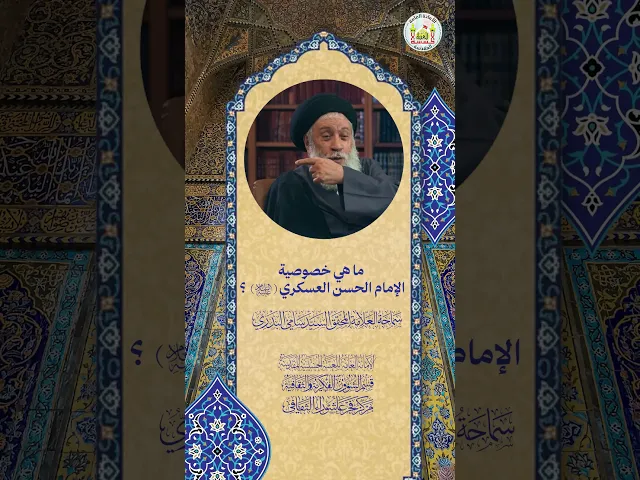 ما هي خصوصية
الإمام الحسن العسكري (عليه السلام) ؟
سماحة العلامة المحقق السيد سامي البدري
الأمانة العامة للعتبة الحسينية المقدسة
قسم الشؤون الفكرية والثقافية
الإمام
؟
سماحة